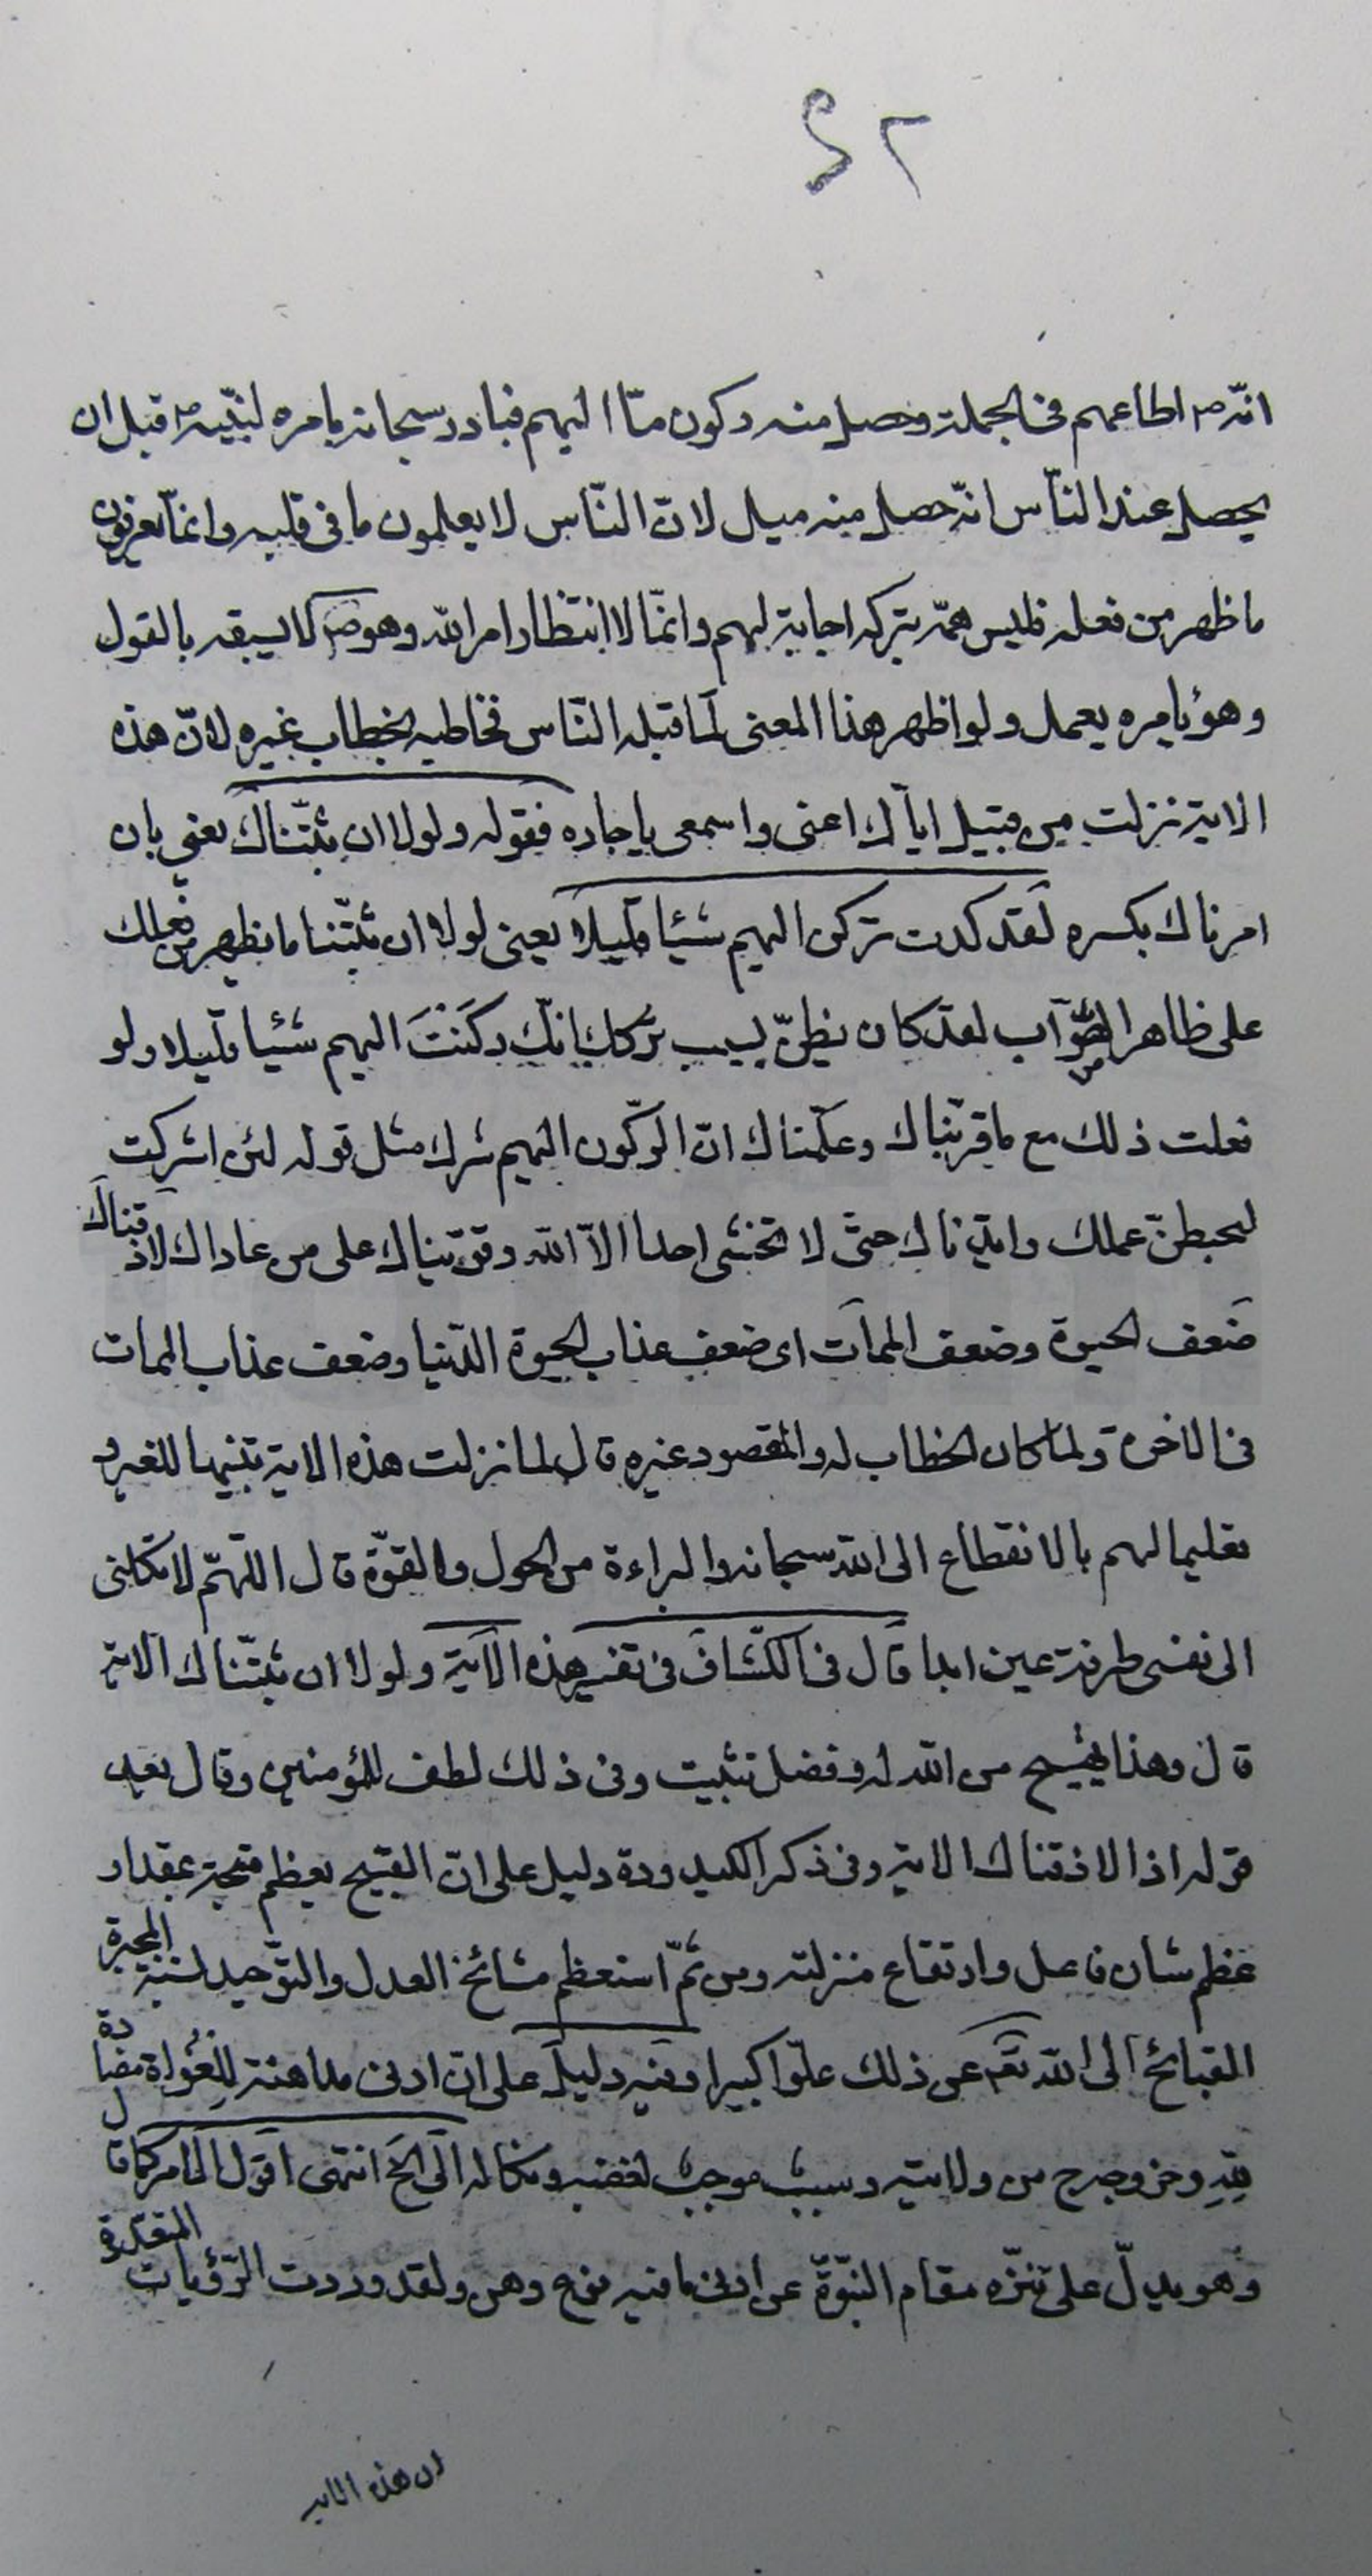 ٤٢
انّه ص اطاعهم فى الجملة وحصل منه ركون مّا اليهم فبادر سبحانه بامره لنبيّه ص قبل ان
يحصل عند النّاس انّه حصل منه ميل لانّ النّاس لا يعلمون ما فى قلبه وانمّا يعرفون
ما ظهر من فعله فليس همّه بتركه اجابة لهم وانمّا لانتظار امر الله وهو ص لا يسبقه بالقول
وهو بامره يعمل ولو اظهر هذا المعنى لما قبله النّاس فخاطبه بخطاب غيره لانّ هذه
الاية نزلت من قبيل ايّاك اعنى واسمعى يا جاره فقوله ولولا ان ثبّتناك يعنى بان
امرناك بكسره لقد كدت تركن اليهم شيئا قليلا يعنى لولا ان ثبّتنا ما يظهر من فعلك
على ظاهر الصّواب لقد كان يظنّ بسبب تركك انّك ركنت اليهم شيئا قليلا ولو
فعلت ذلك مع ما قرّبناك وعلّمناك انّ الرّكون اليهم شرك مثل قوله لئن اشركت
ليحبطنّ عملك وايّدناك حتّى لا تخشى احدا الاّ الله وقوّيناك على من عاداك لاذقناك
ضعف الحيوة وضعف الممات اى ضعف عذاب الحيوة الدّنيا وضعف عذاب الممات
فى الاخرة ولمّا كان الخطاب له والمقصود غيره قال لما نزلت هذه الاية تنبيها للغير و
تعليما لهم بالانقطاع الى الله سبحانه والبراءة من الحول والقوّة قال اللّهمّ لا تكلنى
الى نفسى طرفة عين ابدا قال فى الكشّاف فى تفسير هذه الآية ولولا ان ثبّتناك الاية
قال وهذا تهييج من الله له وفضل تثبيت وفى ذلك لطف للمؤمنين وقال بعد
قوله اذا لاذقناك الاية وفى ذكر الكيدودة دليل على انّ القبيح يعظم قبحه بمقدار
عظم شان فاعله وارتفاع منزلته ومن ثمّ استعظم مشائخ العدل والتّوحيد لنسبة المجبرة
القبائح الى الله تعالى عن ذلك علوّا كبيرا وفيه دليل على انّ ادنى مداهنة للغواة مضادة
لله وخروج من ولايته وسبب موجب لغضبه ونكاله الى الخ انتهى اقول الامر كما قال
وهو يدلّ على تنزّه مقام النّبوّة عن ادنى ما فيه نوع وهن ولقد وردت الرّوايات المتعدّدة
ان هذه الايه